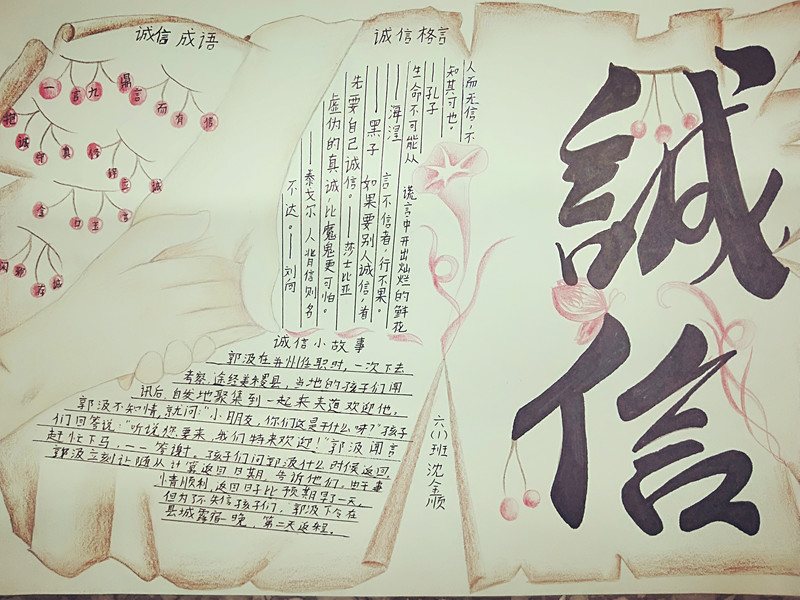 诚信成语
一言九鼎
言而有信
抱诚守真
修辞立诚
金口玉言
闲邪存诚
诚信格言
人而无信，不
知其可也。
——孔子
生命不可能从
谎言中开出灿烂的鲜花
——海涅
言不信者，行不果。
——黑子
如果要别人诚信，首
先要自己诚信。——莎士比亚
虚伪的真诚，比魔鬼更可怕。
——泰戈尔 人背信则名
不达。——刘向
诚信小故事
郭汲在并州任职时，一次下去
考察，途经美稷县，当地的孩子们闻
讯后，自发地聚集到一起来夹道欢迎他。
郭汲不知情，就问：“小朋友，你们这是干什么呀？”孩子
们回答说：“听说您要来，我们特来欢迎！”郭汲闻言
赶忙下马，一一答谢。孩子们问郭汲什么时候返回
郭汲立刻让随从计算返回日期，告诉他们，由于事
情顺利，返回日子比预期早了一天，
但为了不失信孩子们，郭汲下令在
县城露宿一晚，第二天返程。
六（1）班 沈金顺
誠
信